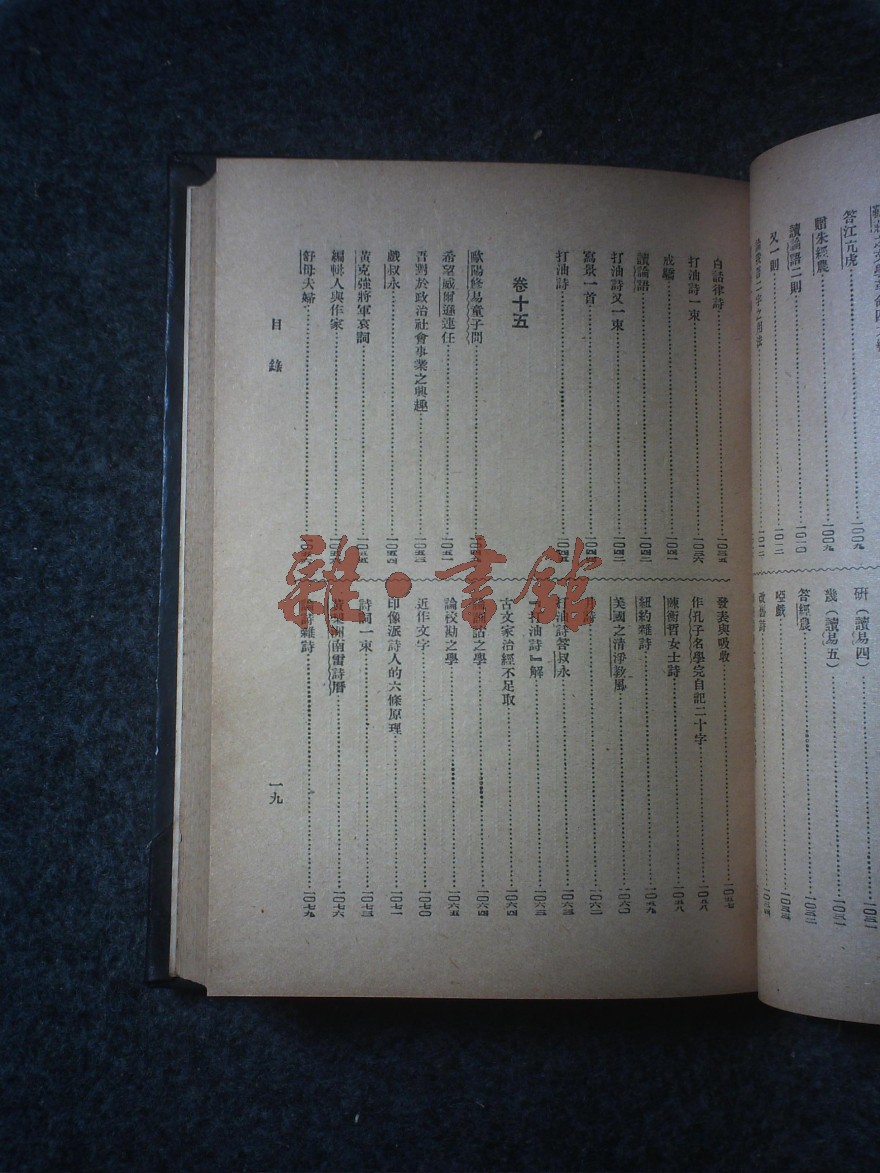 答江亢虎…一〇〇九
贈朱經農…一〇〇九
讀論語二則…一〇一〇
又一則…一〇一二
研（讀易四）
幾（讀易五）…一〇三一
答經農…一〇三二
啞戲…一〇三三
改舊詩…一〇三四
白話律詩…一〇三五
打油詩一束…一〇三六
戒驕…一〇四一
讀論語…一〇四二
打油詩又一束…一〇四二
寫景一首…一〇四四
打油詩…一〇四五
卷十五
歐陽修易童子問
希望威爾遜連任…一〇五一
吾對於政治社會事業之興趣…一〇五三
戲叔永…一〇五四
黃克強將軍哀詞…一〇五五
編輯人與作家
舒母夫婦
發表與吸收…一〇五七
作孔子名學完自記二十字…一〇五八
陳衡哲女士詩…一〇五八
紐約雜詩…一〇五九
美國之清淨教風…一〇六〇
月詩…一〇六二
打油詩答叔永…一〇六三
『打油詩』解…一〇六三
古文家治經不足取…一〇六四
論訓詁之學…一〇六四
論校勘之學…一〇六五
近作文字…一〇七〇
印像派詩人的六條原理…一〇七一
詩詞一束…一〇七三
黃梨洲南雷詩曆…一〇七六
論詩雜詩…一〇七九
目錄
一九
雜·書館